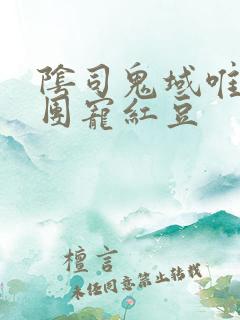 陰司鬼域唯
團寵紅豆
檀言
未经同意禁止转载